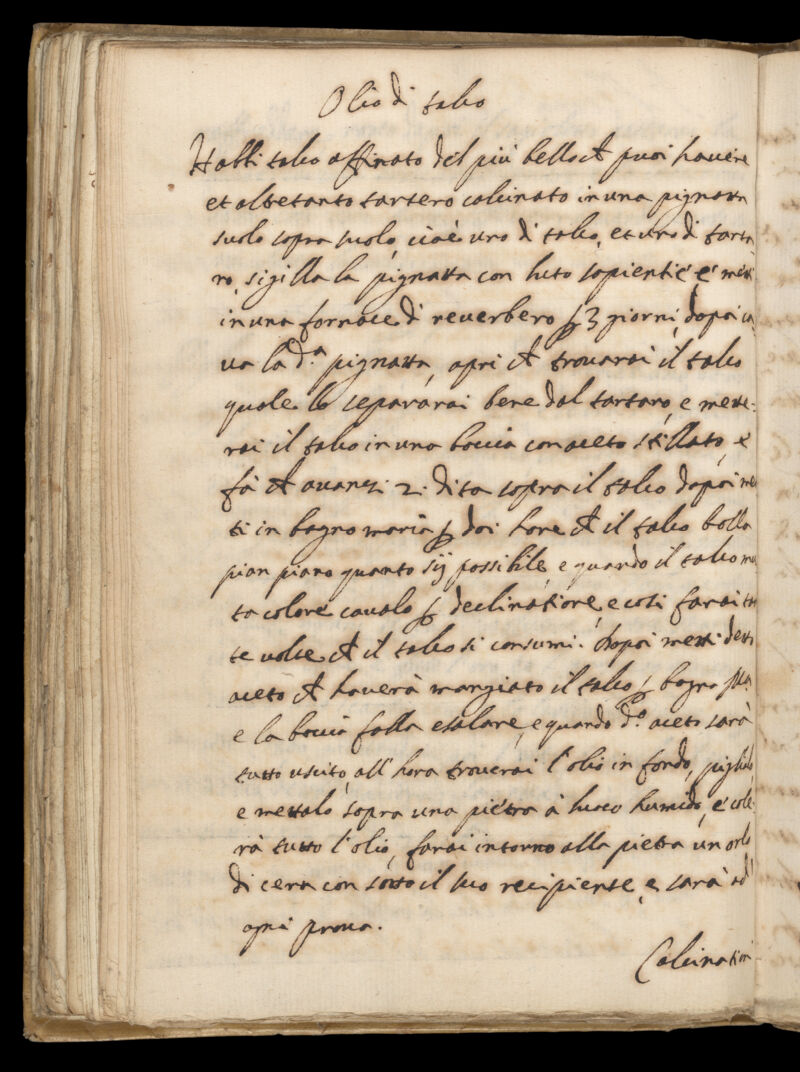 Olio di talco
Habbi talco affinato del più bello ch puoi havere
et altretanto tartaro calcinato in una pignatta
suolo sopra suolo, cioè uno di talco, et uno di tarta
ro, sigilla la pignatta con luto sapientiè, e metti
in una fornace di reverbero p 3 giorni, dopoi ca
va la d.ª pignatta, apri ch trovarai il talco
quale lo separarai bene dal tartaro, e mette:
rai il talco in una boccia con aceto stillato, e
fà ch avanzi 2. dita sopra il talco dopoi met
ti in bagno maria p doi hore ch il talco bolla
pian piano quanto sij possibile, e quando il talco mu
ta colore cavalo p declinatione, e così farai tan
te volte ch il talco si consumi. dopoi metti detto
aceto ch haverà mangiato il talco p bagno Mª
e la boccia falla esalare, e quando d.º aceto sarà
tutto uscito, all' hora troverai l'olio in fondo, piglialo
e mettalo sopra una pietra à luoco humido, e cole
rà tutto l'olio, farai intorno alla pietra un orlo
di cera con sotto il suo recipiente, e sarà ad
ogni prova.
Calcination